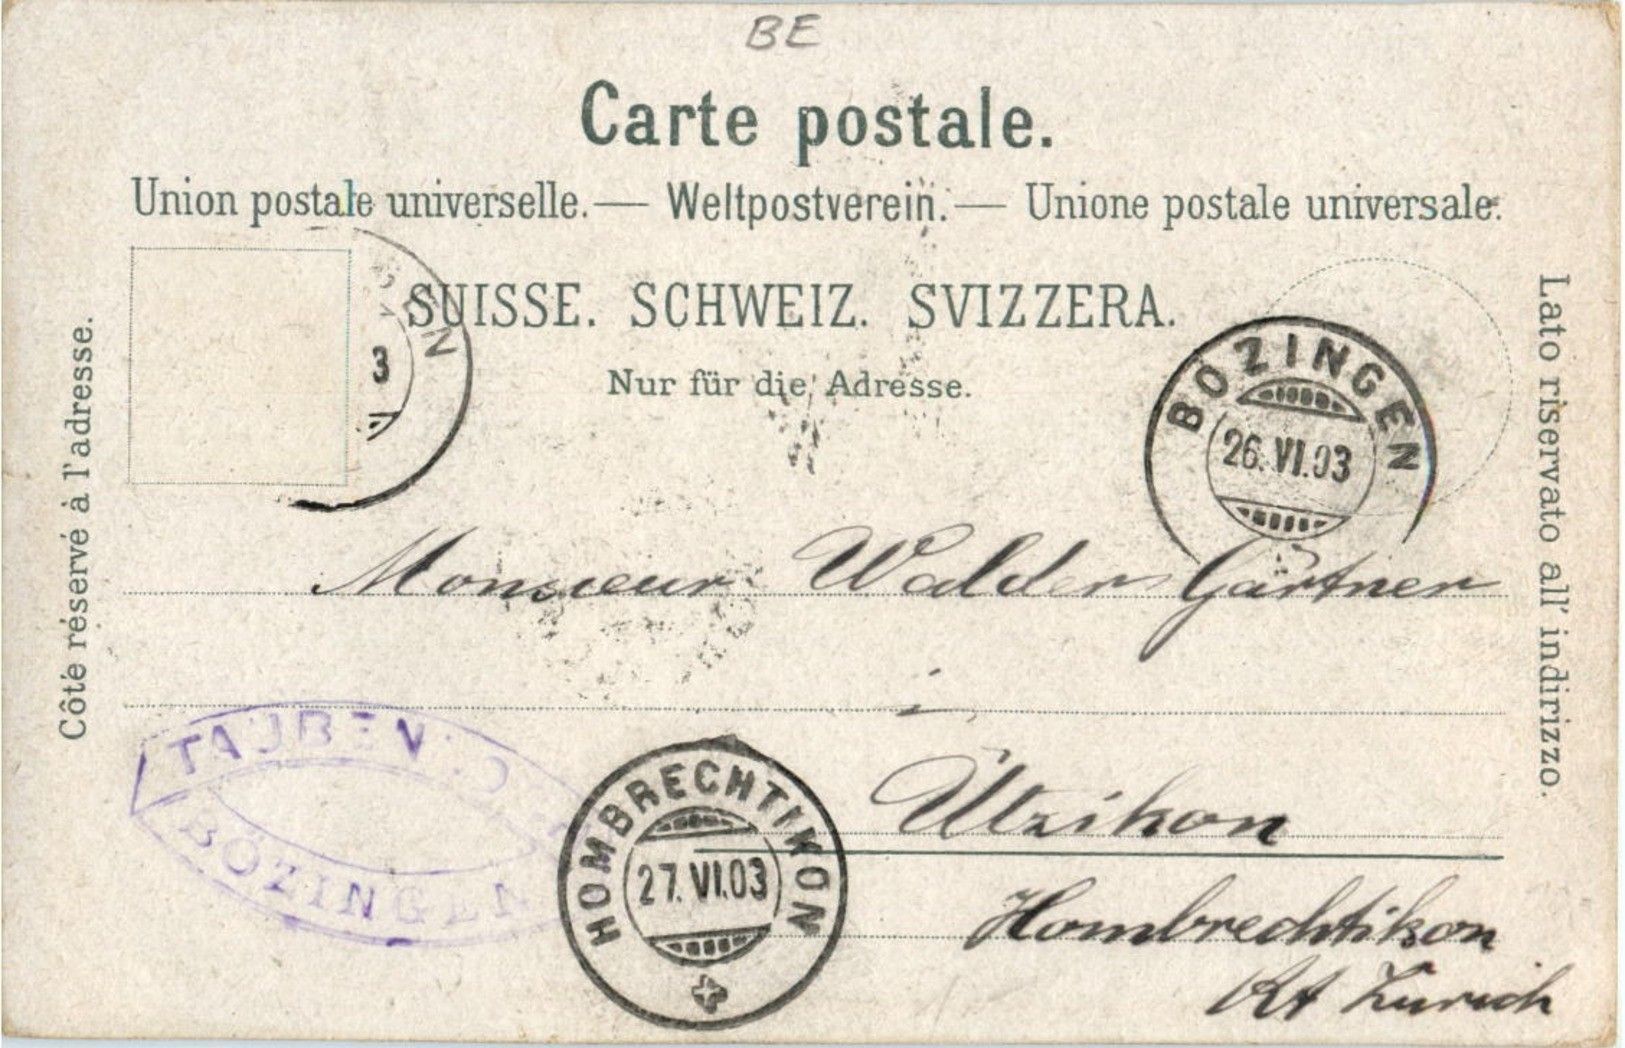 BE
Carte postale.
Union postale universelle. — Weltpostverein. — Unione postale universale.
SUISSE. SCHWEIZ. SVIZZERA.
Nur für die Adresse.
Côté réservé à l'adresse.
Lato riservato all' indirizzo.
EN
3
BOZINGEN
26.VI.03
Monsieur Walder Gärtner
i
Ützikon
Hombrechtikon
Kt Zürich
TAUBEN
BÖZINGEN
HOMBRECHTIKON
27.VI.03